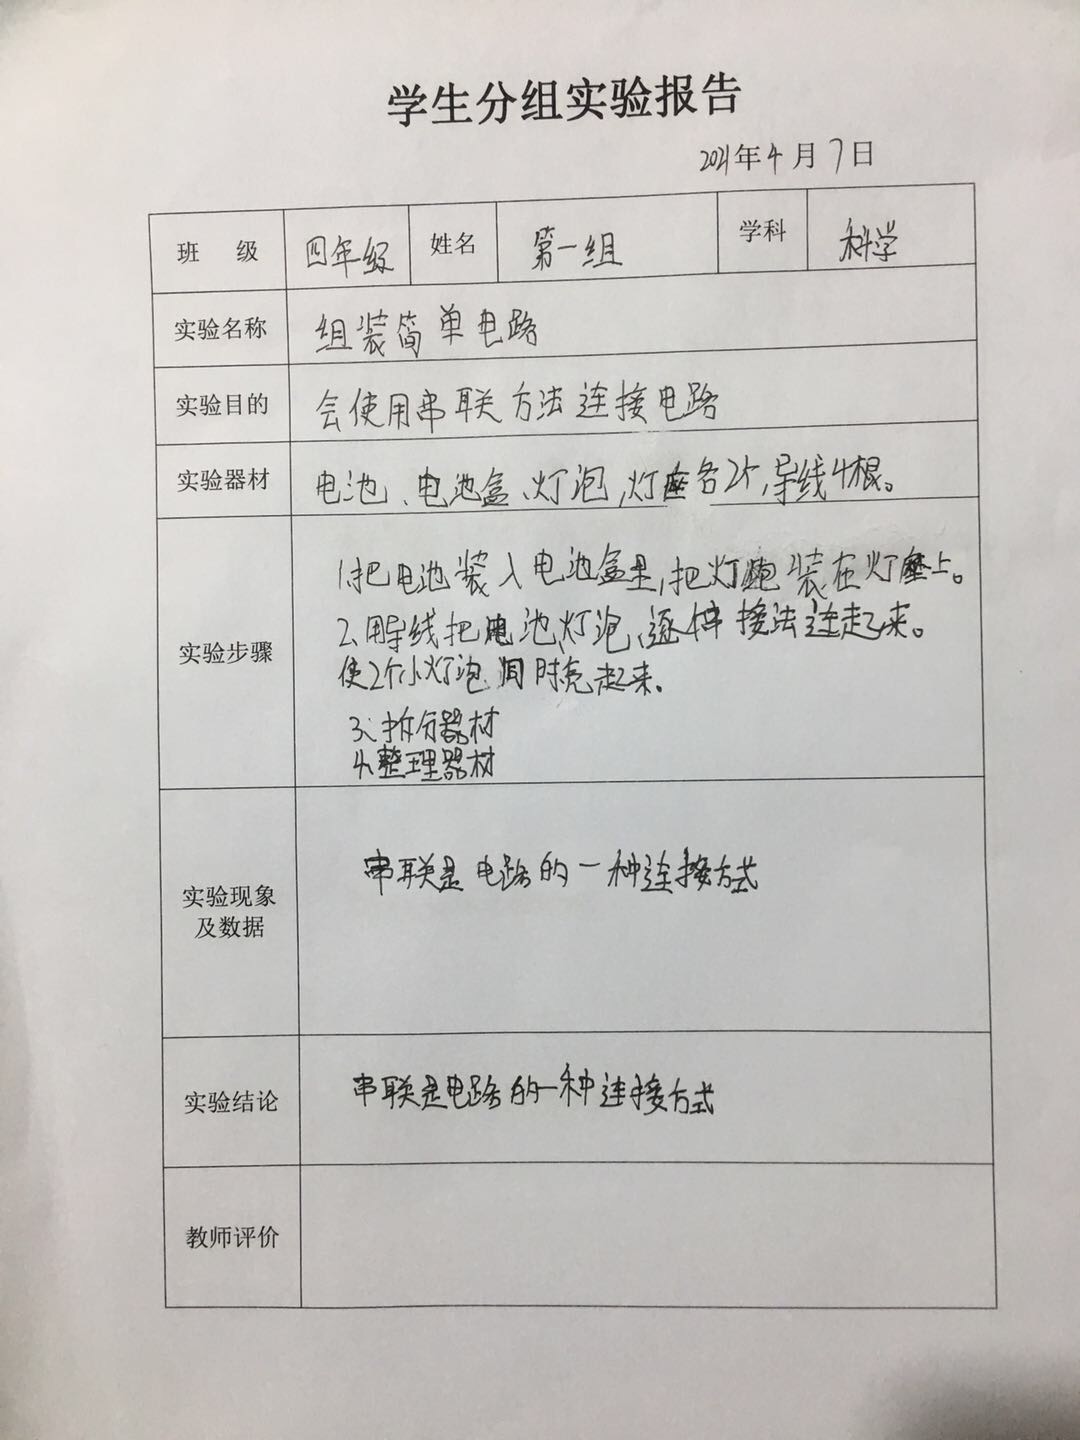 学生分组实验报告
2021年4月7日
班 级 四年级 姓名 第一组 学科 科学
实验名称 组装简单电路
实验目的 会使用串联方法连接电路
实验器材 电池、电池盒、灯泡,灯座各2个,导线4根。
实验步骤
1.把电池装入电池盒里,把灯泡装在灯座上。
2.用导线把电池,灯泡,逐个 接法连起来。
使2个小灯泡同时亮起来。
3、拆分器材
4、整理器材
实验现象
及数据
串联是电路的一种连接方式
实验结论 串联是电路的一种连接方式
教师评价